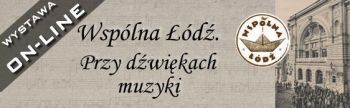 WYSTAWA
ON-LINE
Wspólna Łódź.
Przy dźwiękach
muzyki
WSPÓLNA
ŁÓDŹ